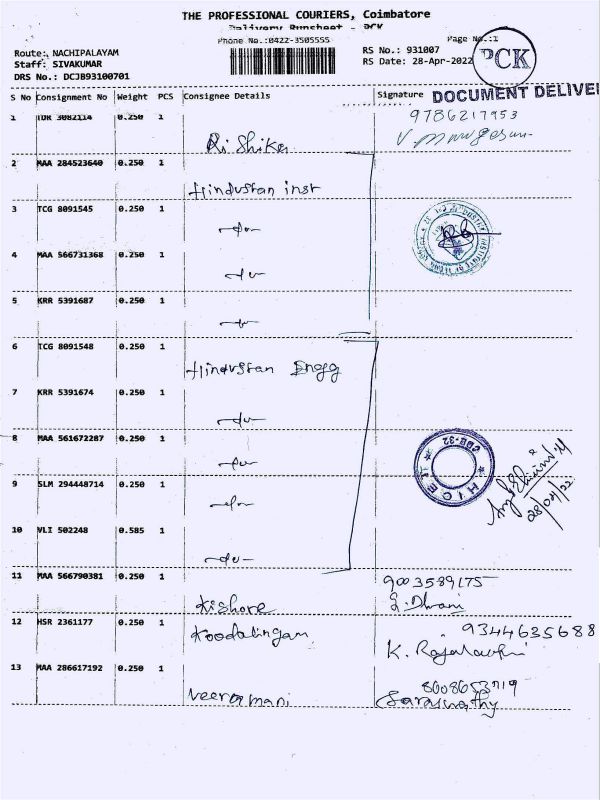 THE PROFESSIONAL COURIERS, Coimbatore
Delivery Runsheet - PCK
Phone No.:0422-3505555
Page No.:1
PCK
Route: NACHIPALAYAM
RS No.: 931007
Staff: SIVAKUMAR
RS Date: 28-Apr-2022
DRS No.: DCJB93100701
S No Consignment No Weight PCS Consignee Details Signature
DOCUMENT DELIVE
1 IDR 3082114 0.250 1 Rishika 9786217953
2 MAA 284523640 0.250 1 Hindustan inst
3 TCG 8091545 0.250 1 -do-
4 MAA 566731368 0.250 1 -do-
5 KRR 5391687 0.250 1 -do-
6 TCG 8091548 0.250 1 Hindustan Engg
7 KRR 5391674 0.250 1 -do-
8 MAA 561672287 0.250 1 -do-
CBE-32
HICET
9 SLM 294448714 0.250 1 -do-
28/04/22
10 VLI 502248 0.585 1 -do-
11 MAA 566790381 0.250 1 Kishore 9003589175
S. Dhani
12 HSR 2361177 0.250 1 Koodalingam 9344635688
13 MAA 286617192 0.250 1 Veeramani
Saraswathy